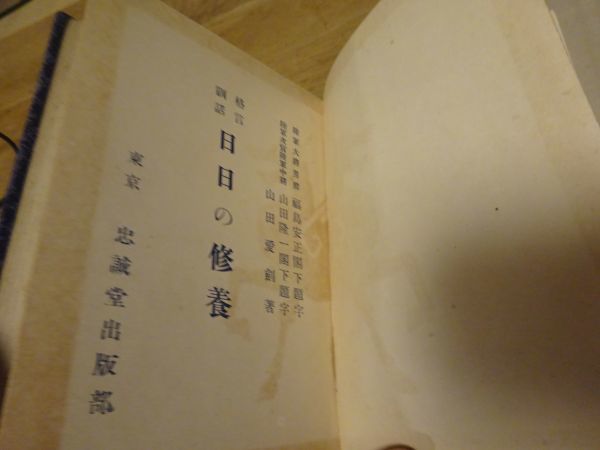 陸軍大將男爵 福島安正閣下題字
陸軍次官陸軍中將 山田隆一閣下題字
山田愛劍著
格言
訓話
日日の修養
東京 忠誠堂出版部